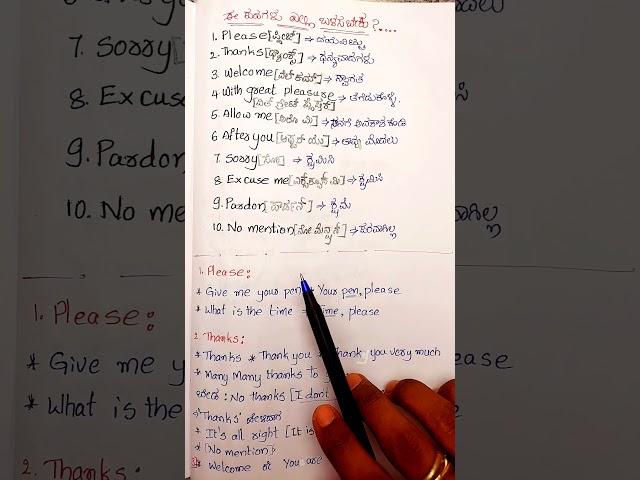 ಈ ಪದಗಳು ಎಲ್ಲಿ ಬಳಸಬೇಕು?....
1. Please [ಪ್ಲೀಜ್] → ದಯವಿಟ್ಟು
2. Thanks [ಥ್ಯಾಂಕ್ಸ್] → ಧನ್ಯವಾದಗಳು
3 Welcome [ವೆಲ್ ಕಮ್] → ಸ್ವಾಗತ
4 With great pleasure → ತೆಗೆದುಕೊಳ್ಳಿ.
[ವಿತ್ ಗ್ರೇಟ್ ಪ್ಲೆಷರ್]
5 Allow me [ಅಲೌ ಮಿ] → ನನಗೆ ಅವಕಾಶ ಕೊಡಿ
6 After you [ಆಫ್ಟರ್ ಯು] → ತಾವು ಮೊದಲು
7. Sorry [ಸಾರಿ] → ಕ್ಷಮಿಸಿ
8. Excuse me [ಎಕ್ಸ್ ಕ್ಯೂಸ್ ಮಿ] → ಕ್ಷಮಿಸಿ
9. Pardon [ಪಾರ್ಡನ್] → ಕ್ಷಮೆ
10. No mention [ನೋ ಮೆನ್ಷನ್] → ಪರವಾಗಿಲ್ಲ
1. Please:
* Give me your pen Your pen, please
* What is the time = Time, please
2. Thanks:
* Thanks * Thank you * Thank you very much
* Many Many thanks to
ಬೇಡ : No thanks [I dont
"Thanks" ಹೇಳಿದಾಗ
* It's all right [It is
* [No mention]
* Welcome or You are
7. Sorry
8. Excuse
9. Pardon
10. No me
1. Please:
* Give me
* What is the
2. Thanks: